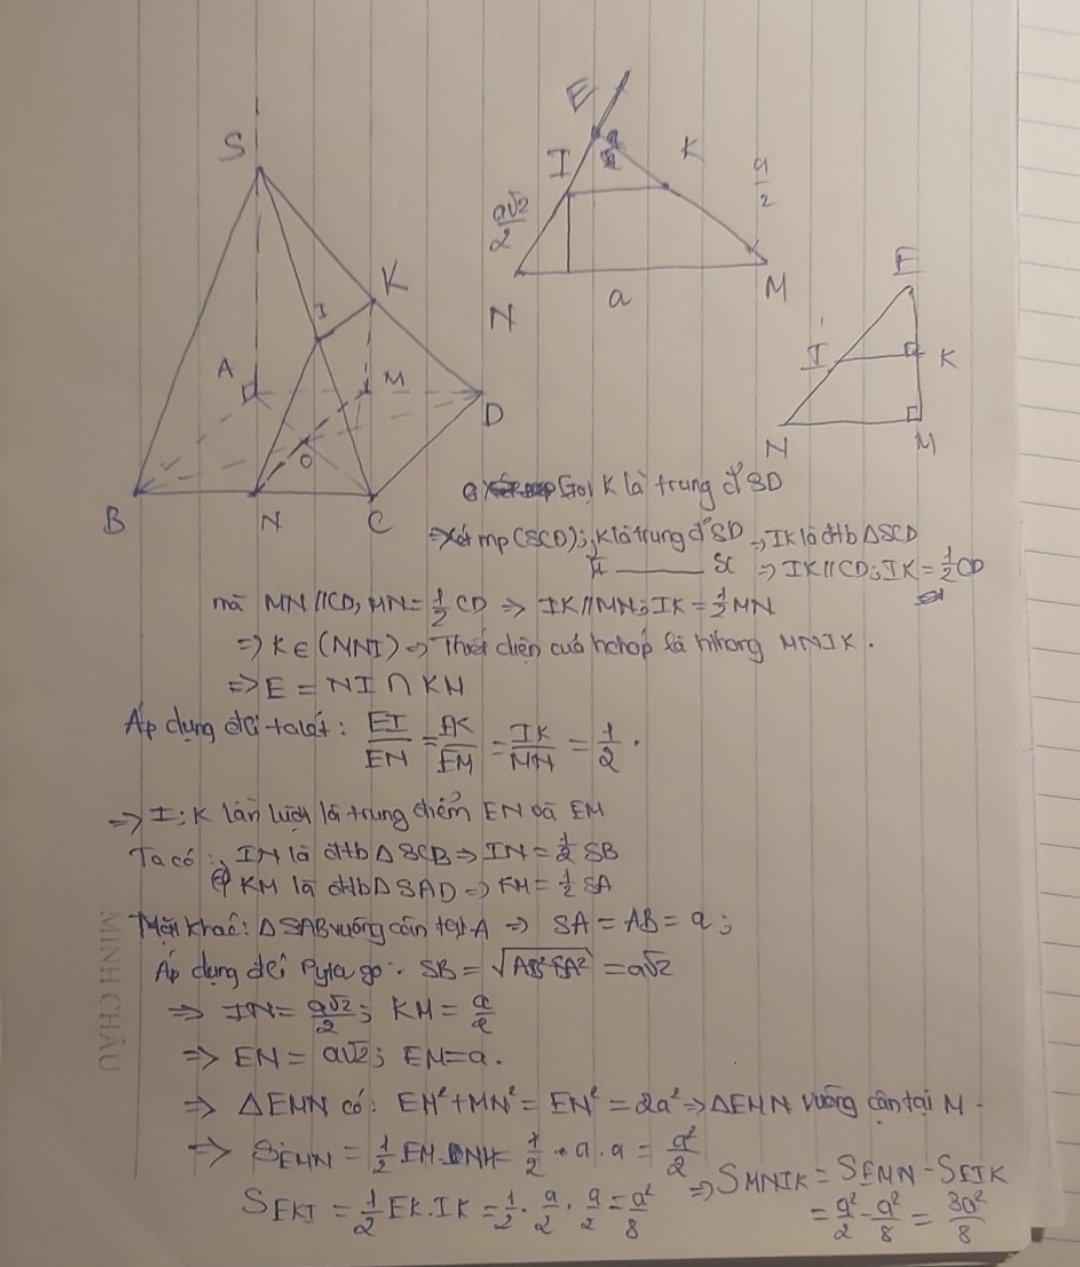 S
K
I
A
M
D
O
B
N
C
E
I
K
a√2/2
a/2
N
a
M
E
I
K
N
M
Gọi K là trung đ' SD
⇒ Xét mp (SCD); K là trung đ' SD ⇒ IK là đtb ΔSCD
I —— SC ⇒ IK // CD; IK = 1/2 CD
mà MN // CD, MN = 1/2 CD ⇒ IK // MN; IK = 1/2 MN
⇒ K ∈ (MNI) ⇒ Thiết diện của hchóp là hthang MNIK.
⇒ E = NI ∩ KM
Áp dụng đlí talét: EI/EN = EK/EM = IK/MN = 1/2.
⇒ I; K lần lượt là trung điểm EN và EM
Ta có: IN là đtb Δ SCB ⇒ IN = 1/2 SB
KM là đtb Δ SAD ⇒ KM = 1/2 SA
Mặt khác: Δ SAB vuông cân tại A ⇒ SA = AB = a;
Áp dụng đlí Pytago: SB = √(AB²+SA²) = a√2
⇒ IN = a√2/2; KM = a/2
⇒ EN = a√2; EM = a.
⇒ ΔEMN có: EM² + MN² = EN² = 2a² ⇒ ΔEMN vuông cân tại M.
⇒ SEMN = 1/2 EM.MN = 1/2 . a . a = a²/2
SEKI = 1/2 EK.IK = 1/2 . a/2 . a/2 = a²/8
⇒ SMNIK = SEMN - SEIK
= a²/2 - a²/8 = 3a²/8
MINH CHÂU